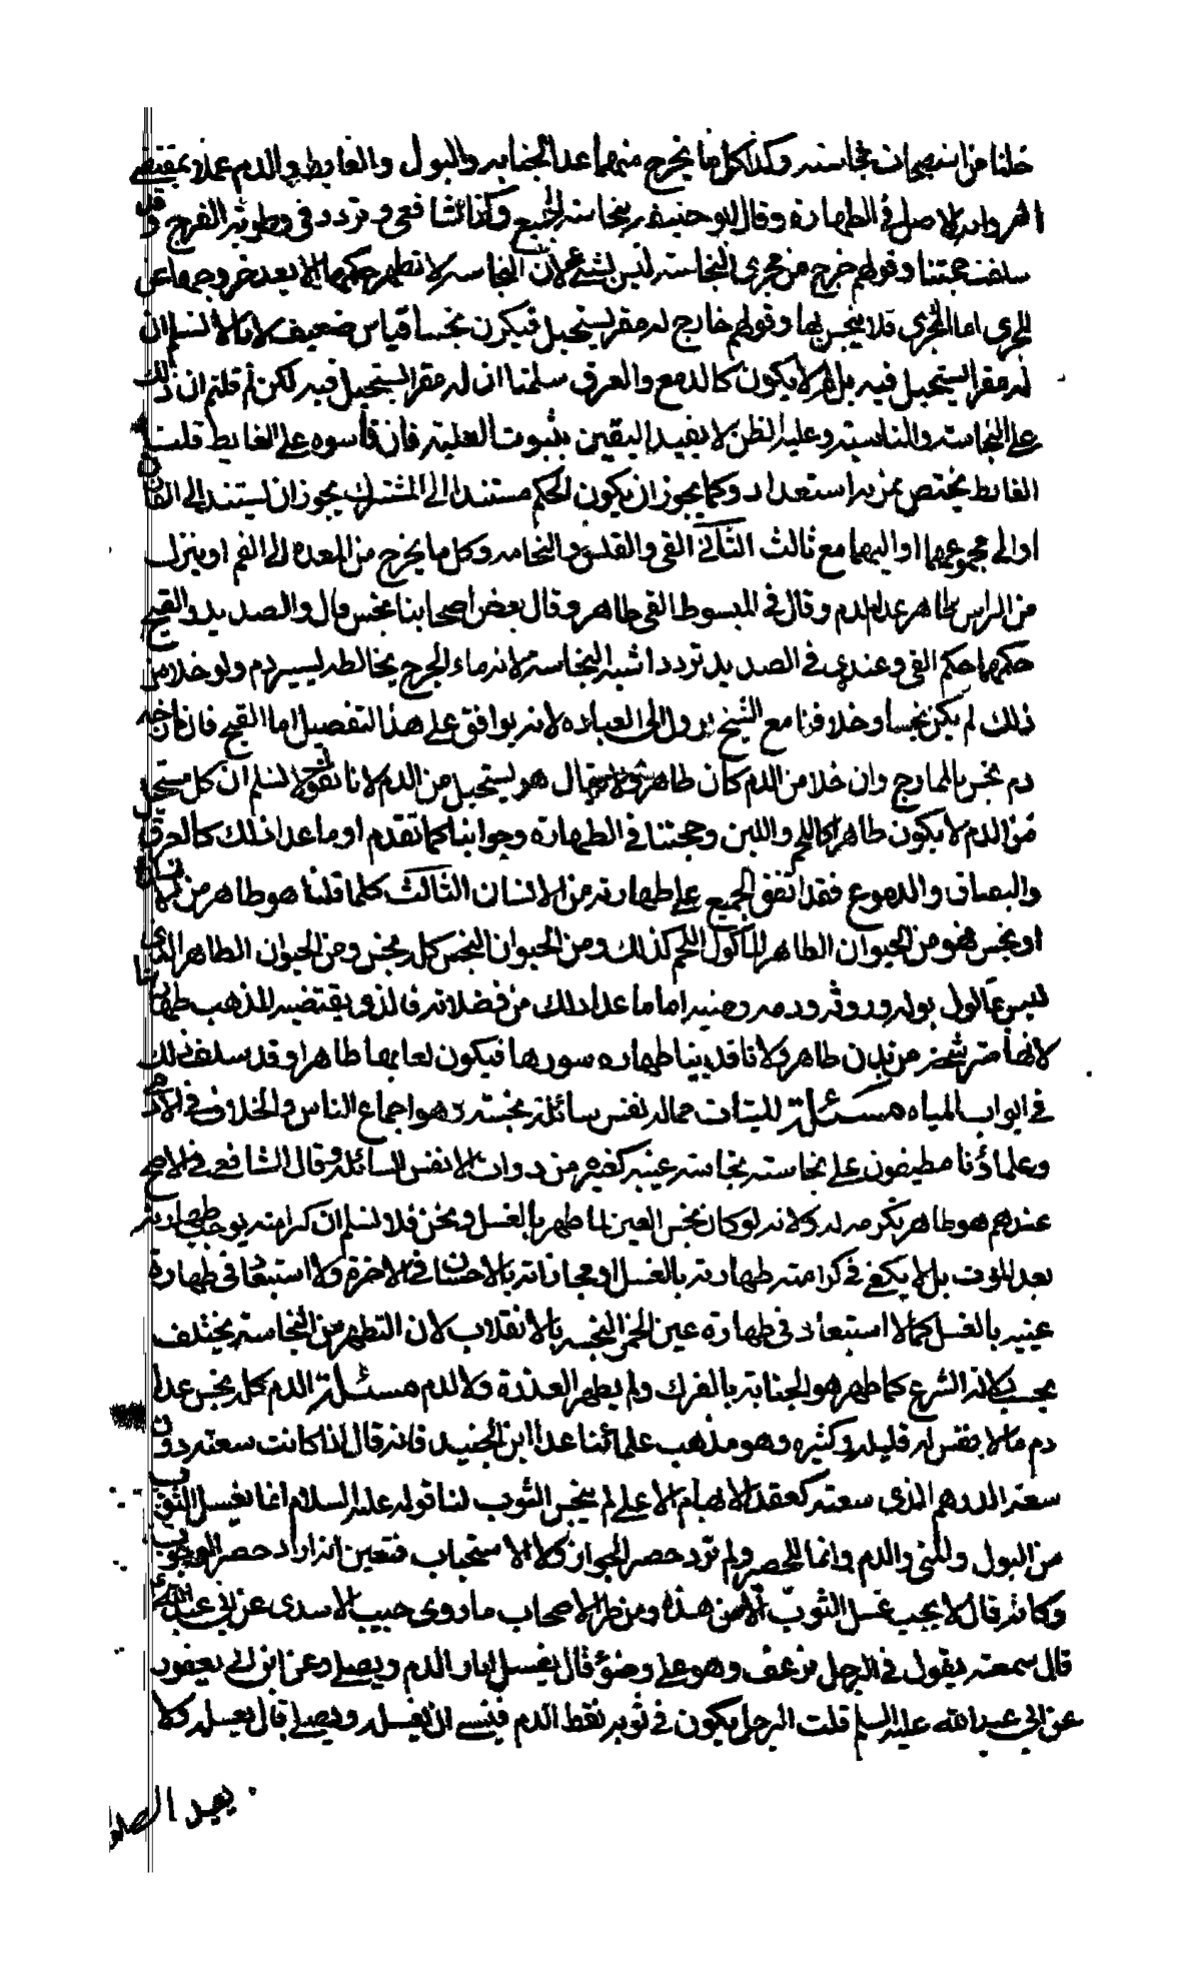 خلنا من استصحاب نجاسته وكذا كل ما يخرج منهما عدا الجنابه والبول والغايط والدم عملا بمقتضى
الاصل في الطهارة وقال ابو حنيفه بنجاسة الجميع وكذا الشافعي وتردد في رطوبة الفرج وقد
سلفت حجتنا وقولهم خرج من مجرى النجاسة ليس بشئ لان النجاسه لا تظهر حكمها الا بعد خروجها عن
المجرى اما المجرى فلا ينجس بها وقولهم خارج له مقر يستحيل فيكون نجسا قياس ضعيف لانا لا نسلم ان
له مقرا يستحيل فيه بل لم لا يكون كالدمع والعرق سلمنا ان له مقرا يستحيل فيه لكن لم قلتم ان ذلك
علة النجاسة والمناسبة وغلبة الظن لا يفيد اليقين بثبوت العلية فان قاسوه على الغايط قلنا
الغايط يختص بمزيد استعداد وكما يجوز ان يكون الحكم مستندا الى المشترك يجوز ان يستند الى الفارق
او الى مجموعهما او اليهما مع ثالث الثاني القي والقلس والنخامه وكل ما يخرج من المعده الى الفم او ينزل
من الراس طاهر عدا الدم وقال في المبسوط القي طاهر وقال بعض اصحابنا نجس قال والصديد والقيح
حكمهما حكم القي وعندي في الصديد تردد اشبهه النجاسة لانه ماء الجرح يخالطه يسير دم ولو خلا من
ذلك لم يكن نجسا وخلافنا مع الشيخ يؤول الى العباره لانه يوافق على هذا التفصيل اما القيح فان مازجه
دم نجس بالممازج وان خلا من الدم كان طاهرا ولا يقال هو يستحيل من الدم لانا نقول لا نسلم ان كل مستحيل
من الدم لا يكون طاهرا كاللحم واللبن وحجتنا في الطهارة وجوابنا كما تقدم او ما عدا ذلك كالعرق
والبصاق والدموع فقد اتفق الجميع على طهارته من الانسان الثالث كلما قلنا هو طاهر من الانسان
او نجس فهو من الحيوان الطاهر المأكول اللحم كذلك ومن الحيوان النجس كله نجس ومن الحيوان الطاهر الذي
ليس بمأكول بوله وروثه ودمه ومنيه اما ما عدا ذلك من فضلاته فالذي يقتضيه المذهب طهارتها
لانها مترشحه من بدن طاهر ولانا قد بينا طهاره سورها فيكون لعابها طاهرا وقد سلف ذلك
في ابواب المياه مسئلة الميتات مما له نفس سائلة نجسة وهو اجماع الناس والخلاف في الادمي
وعلماؤنا مطبقون على نجاسته نجاسة عينيه كغيره من ذوات الانفس السائلة وقال الشافعي في الاصح
عندهم هو طاهر تكرمه له ولانه لو كان نجس العين لما طهر بالغسل ونحن فلا نسلم ان كرامته يوجب طهارته
بعد الموت بل لا يكفي في كرامته طهارته بالغسل او مجازاته بالاحسان في الاخرة ولا استبعاد في طهارة
عينيه بالغسل كما لا استبعاد في طهارة عين الخمر النجسه بالانقلاب لان التطهير من النجاسة يختلف
بحسب كالة الشرع كما طهر هو الجنابة بالفرك ولم يطهر العذرة ولا الدم مسئلة الدم كله نجس عدا
دم ما لا نفس له قليله وكثيره وهو مذهب علمائنا عدا ابن الجنيد فانه قال اذا كانت سعته دون
سعة الدرهم الذي سعته كعقد الابهام الاعلى لم ينجس الثوب لنا قوله عليه السلام انما يغسل الثوب
من البول والمني والدم وانما للحصر ولم ترد حصر الجواز ولا الاستحباب فتعين انه اراد حصر الوجوب
وكانه قال لا يجب غسل الثوب الا من هذه ومن طريق الاصحاب ما روى حبيب الاسدى عن ابي عبد الله
قال سمعته يقول في الرجل يرعف وهو على وضوء قال يغسل اثار الدم ويصلي وعن ابن ابي يعفور
عن ابي عبد الله عليه السلم قلت الرجل يكون في ثوبه نقط الدم فينسى ان يغسله ويصلي قال يغسله ولا
يعيد الصلوة